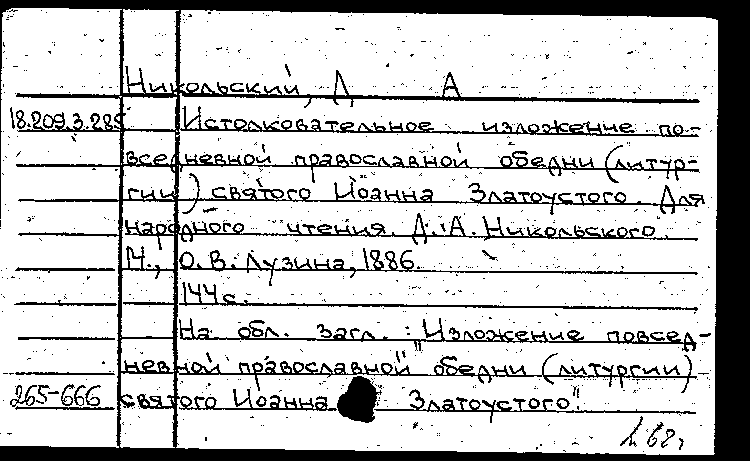 Никольский, Д А
18.209.3.285 Истолковательное изложение по-
вседневной православной обедни (литур-
гии) святого Иоанна Златоустого. Для
народного чтения. Д. А. Никольского.
М., О. В. Лузина, 1886.
144с.
На обл. загл.: "Изложение повсед-
невной православной обедни (литургии)
265-666 святого Иоанна Златоустого".